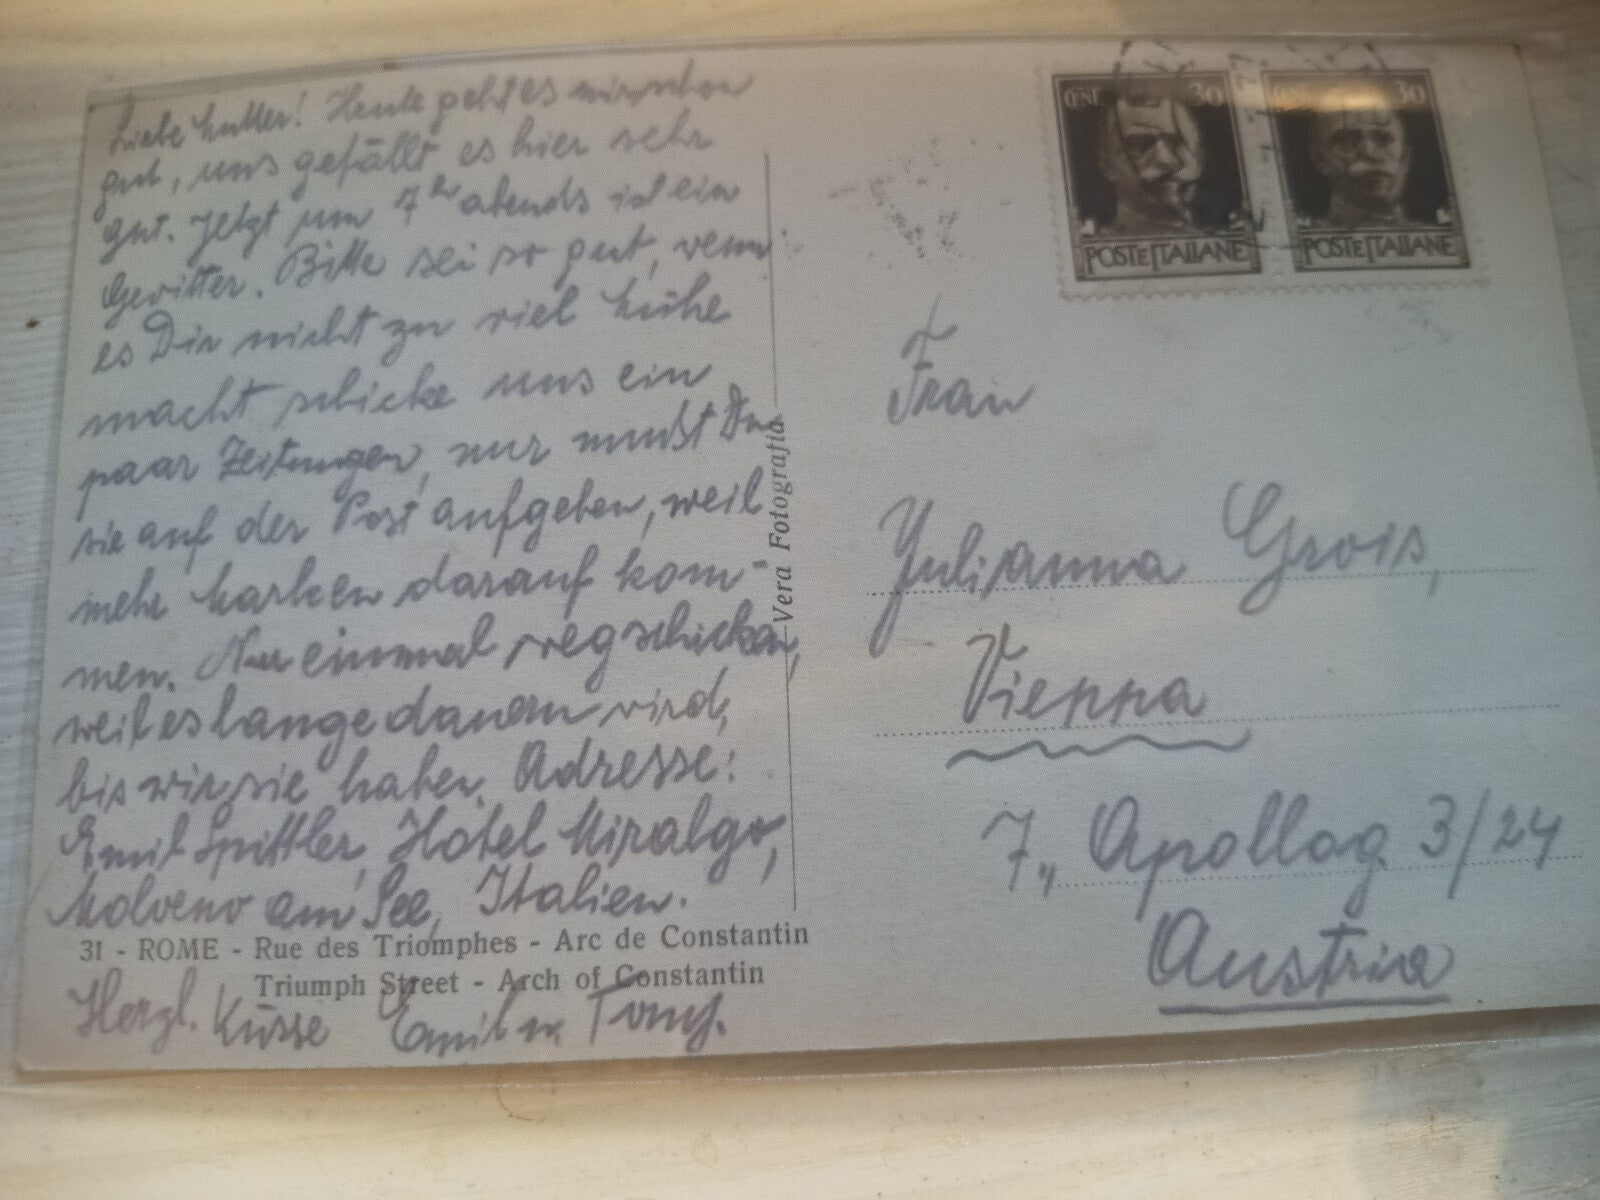 Liebe Mutter! Heute geht es mir schon
gut, uns gefällt es hier sehr
gut. Jetzt um 7 h abends ist ein
Gewitter. Bitte sei so gut, wenn
es Dir nicht zu viel Mühe
macht schicke uns ein
paar Zeitungen, nur mußt Du
sie auf der Post aufgeben, weil
mehr Marken darauf kom-
men. Nur einmal wegschicken,
weil es lange dauern wird,
bis wir sie haben. Adresse:
Emil Spittler, Hotel Miralgo,
Molveno am See, Italien.
31 - ROME - Rue des Triomphes - Arc de Constantin
Triumph Street - Arch of Constantin
Herzl. Küsse Emil u.
Vera Fotografia
CENT 30
POSTE ITALIANE
30
POSTE ITALIANE
Frau
Julianna Grois,
Vienna
7., Apollog. 3/24
Austria